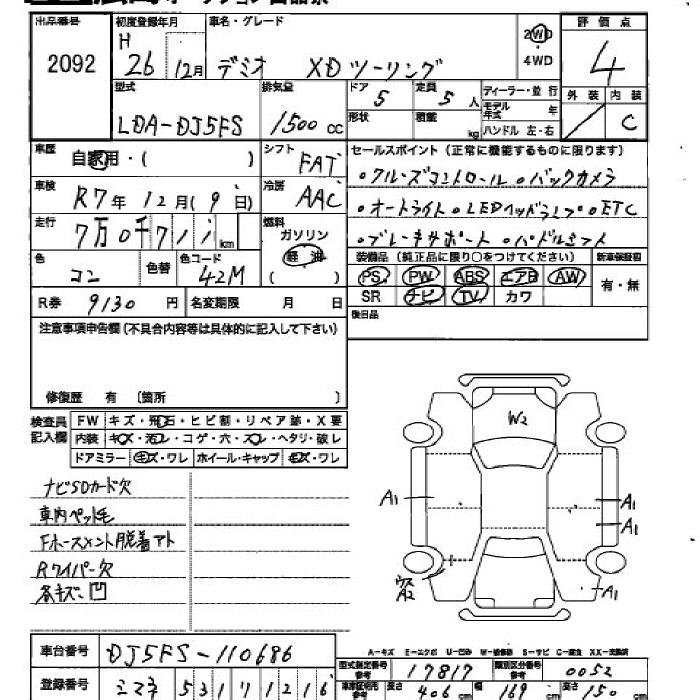 出品番号 初度登録年月 車名・グレード 2WD 4WD 評価点
2092 H 26 12月 デミオ XDツーリング 4
外装 内装
型式 排気量 ドア 5 定員 5人 ディーラー・並行
LDA-DJ5FS 1500cc 形状 積載 kg モデル年式 年 C
ハンドル 左・右
車歴 自家用・( ) シフト FAT セールスポイント(正常に機能するものに限ります)
車検 R7年12月(9日) 冷房 AAC
。クルーズコントロール 。バックカメラ
。オートライト 。LEDヘッドランプ 。ETC
。ブレーキサポート 。パドルシフト
走行 7万0千711km 燃料 ガソリン 軽油 ( )
色 コン 色替 色コード 42M
装備品(純正品に限り○をつけてください) 新車保証書
PS PW ABS エアB AW 有・無
SR ナビ TV カワ
R券 9130円 名変期限 月 日 後日品
注意事項申告欄(不具合内容等は具体的に記入して下さい)
修復歴 有 〔箇所 〕
検査員記入欄 FW キズ・飛石・ヒビ割・リペア跡・X要
内装 キズ・汚レ・コゲ・穴・スレ・ヘタリ・破レ
ドアミラー キズ・ワレ ホイール・キャップ キズ・ワレ
ナビSDカード欠
車内ペット毛
Rワイパー欠
W2
A1 A1
A1
A2 A1
A-キズ E-エクボ U-凹み W-補修跡 S-サビ C-腐食 XX-交換済
車台番号 DJ5FS-110686
型式指定番号 参考 17817 類別区分番号 参考 0052
登録番号 シマネ 531 ワ 1216
車庫証明用 参考 長さ 406cm 幅 169cm 高さ 150cm